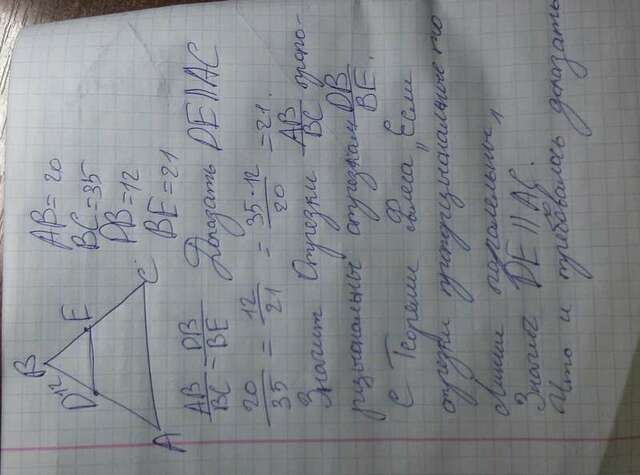 B
D 12 E
A C
AB = 20
BC = 35
DB = 12
BE = 21
AB/BC = DB/BE Доказать DE || AC
20/35 = 12/21 = 35·12/20 = 21.
Значит Отрезки AB/BC пропо-
рциональны отрезкам DB/BE.
С Теоремы Фалеса "Если
отрезки пропорциональные то
линии параллельны,
Значит DE || AC.
Что и требовалось доказать